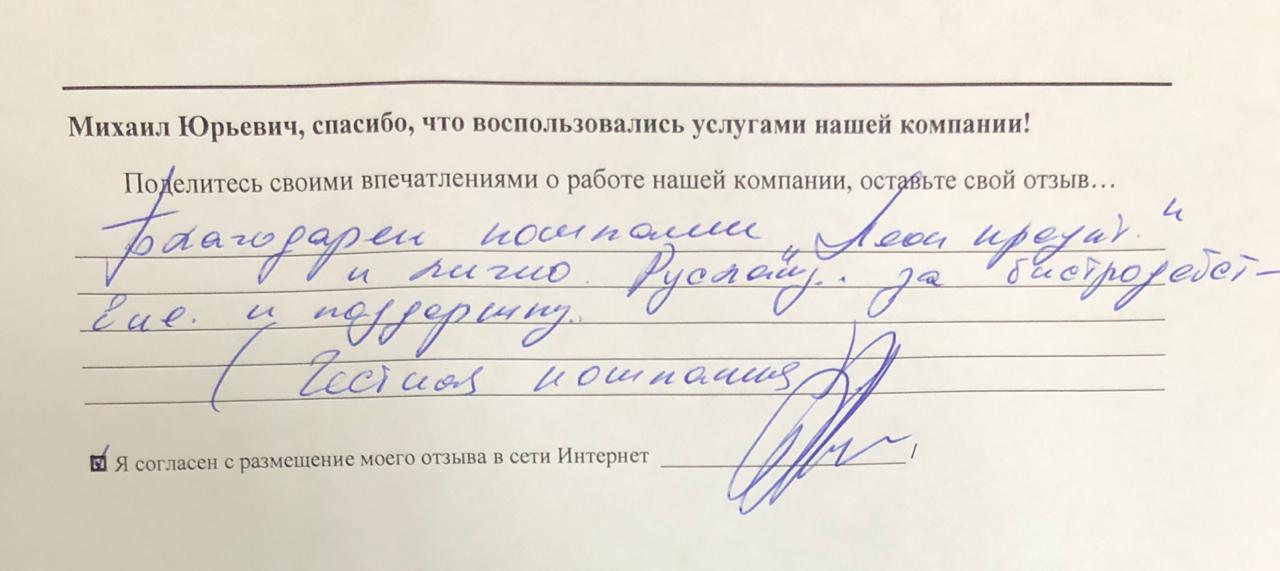 Михаил Юрьевич, спасибо, что воспользовались услугами нашей компании!
Поделитесь своими впечатлениями о работе нашей компании, оставьте свой отзыв…
Благодарен компании "Леон кредит"
и лично Руслану за бистродейст-
вие. и поддержку.
( Честная компания )
Я согласен с размещение моего отзыва в сети Интернет